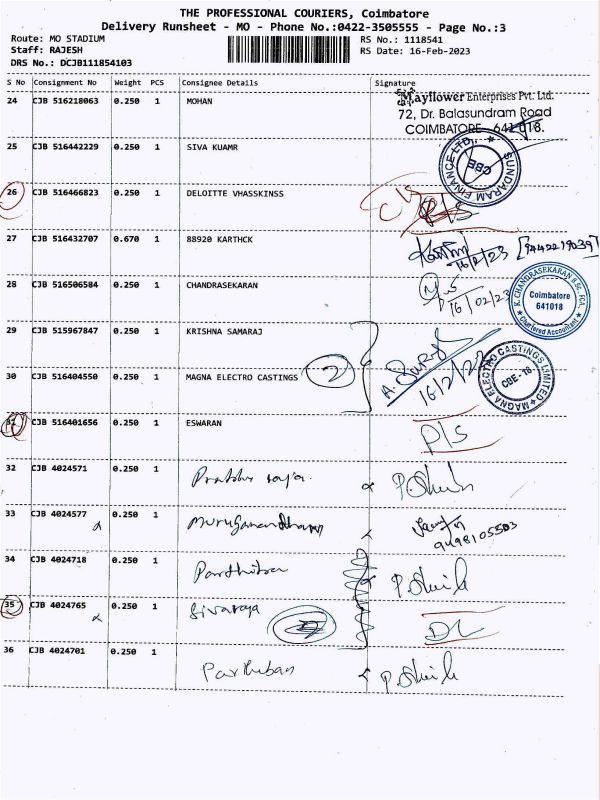 THE PROFESSIONAL COURIERS, Coimbatore
Delivery Runsheet - MO - Phone No.:0422-3505555 - Page No.:3
Route: MO STADIUM
Staff: RAJESH
DRS No.: DCJB111854103
RS No.: 1118541
RS Date: 16-Feb-2023
S No Consignment No Weight PCS Consignee Details Signature
24 CJB 516218063 0.250 1 MOHAN
Mayflower Enterprises Pvt. Ltd.
72, Dr. Balasundram Road
COIMBATORE - 641 018.
25 CJB 516442229 0.250 1 SIVA KUAMR
SUNDARAM FINANCE LTD. CBE
26 CJB 516466823 0.250 1 DELOITTE VHASSKINSS
27 CJB 516432707 0.670 1 88920 KARTHCK
16/2/23 [9442219039]
28 CJB 516506584 0.250 1 CHANDRASEKARAN
16/02/23
K. CHANDRASEKARAN B.Sc. FCA.
Coimbatore
641018
Chartered Accountant
29 CJB 515967847 0.250 1 KRISHNA SAMARAJ
30 CJB 516404550 0.250 1 MAGNA ELECTRO CASTINGS 2
16/2/23
MAGNA ELECTRO CASTINGS LIMITED CBE-18
31 CJB 516401656 0.250 1 ESWARAN P/S
32 CJB 4024571 0.250 1 Prabhu raja
33 CJB 4024577 0.250 1 Muruganandham
9498105503
34 CJB 4024718 0.250 1
35 CJB 4024765 0.250 1 Sivaraja DL
36 CJB 4024701 0.250 1 Parthiban